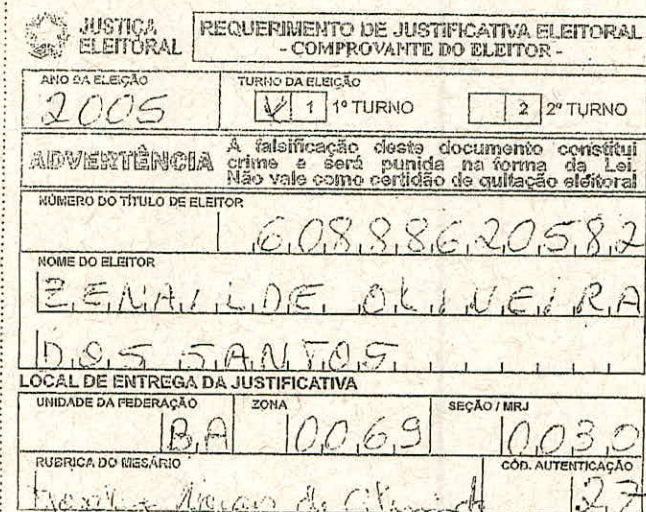 JUSTIÇA ELEITORAL
REQUERIMENTO DE JUSTIFICATIVA ELEITORAL
- COMPROVANTE DO ELEITOR -
ANO DA ELEIÇÃO
2005
TURNO DA ELEIÇÃO
1 1º TURNO
2 2º TURNO
ADVERTÊNCIA
A falsificação deste documento constitui
crime e será punida na forma da Lei.
Não vale como certidão de quitação eleitoral
NÚMERO DO TÍTULO DE ELEITOR
60888620582
NOME DO ELEITOR
ZENAILDE OLIVEIRA
DOS SANTOS
LOCAL DE ENTREGA DA JUSTIFICATIVA
UNIDADE DA FEDERAÇÃO
BA
ZONA
0069
SEÇÃO / MRJ
0030
RUBRICA DO MESÁRIO
CÓD. AUTENTICAÇÃO
27